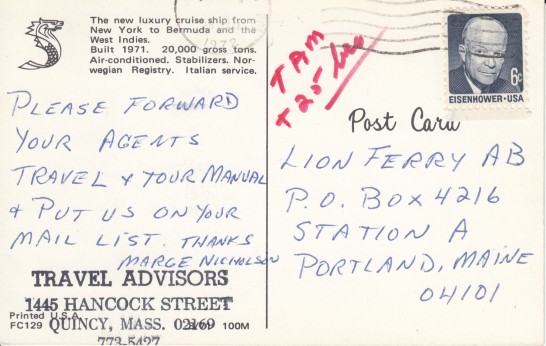 The new luxury cruise ship from
New York to Bermuda and the
West Indies.
Built 1971. 20,000 gross tons.
Air-conditioned. Stabilizers. Nor-
wegian Registry. Italian service.
PLEASE FORWARD
YOUR AGENTS
TRAVEL & TOUR MANUAL
& PUT US ON YOUR
MAIL LIST. THANKS
MARGE NICHOLSON
TRAVEL ADVISORS
1445 HANCOCK STREET
QUINCY, MASS. 02169
773-5497
Printed U.S.A.
FC129
100M
TAM
+ 25
6c
EISENHOWER·USA
Post Card
LION FERRY AB
P.O. BOX 4216
STATION A
PORTLAND, MAINE
04101